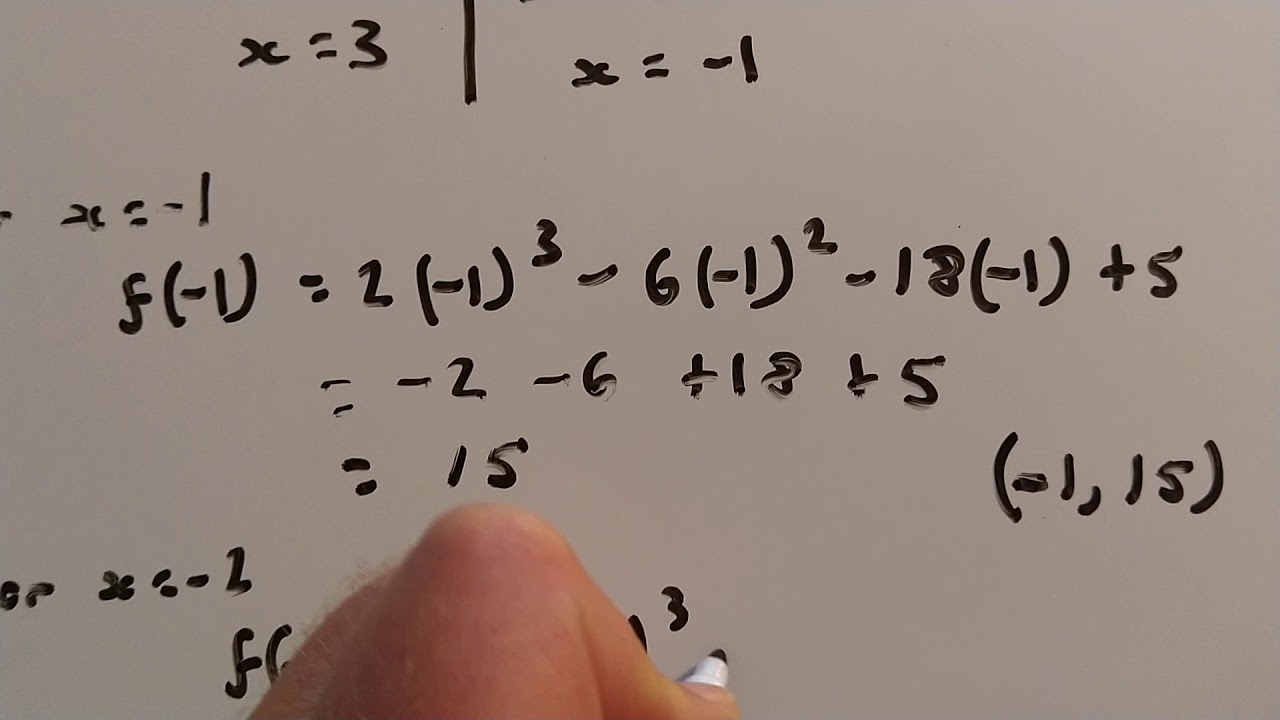 x = 3 | x = -1
x = -1
f(-1) = 2(-1)³ - 6(-1)² - 18(-1) + 5
= -2 - 6 + 18 + 5
= 15 (-1, 15)
or x = -2
f( )³